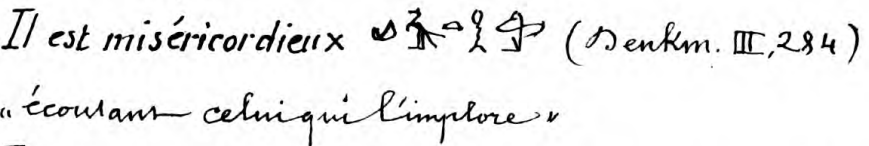 Il est miséricordieux (Denkm. III, 284)
"écoutant celui qui l'implore"